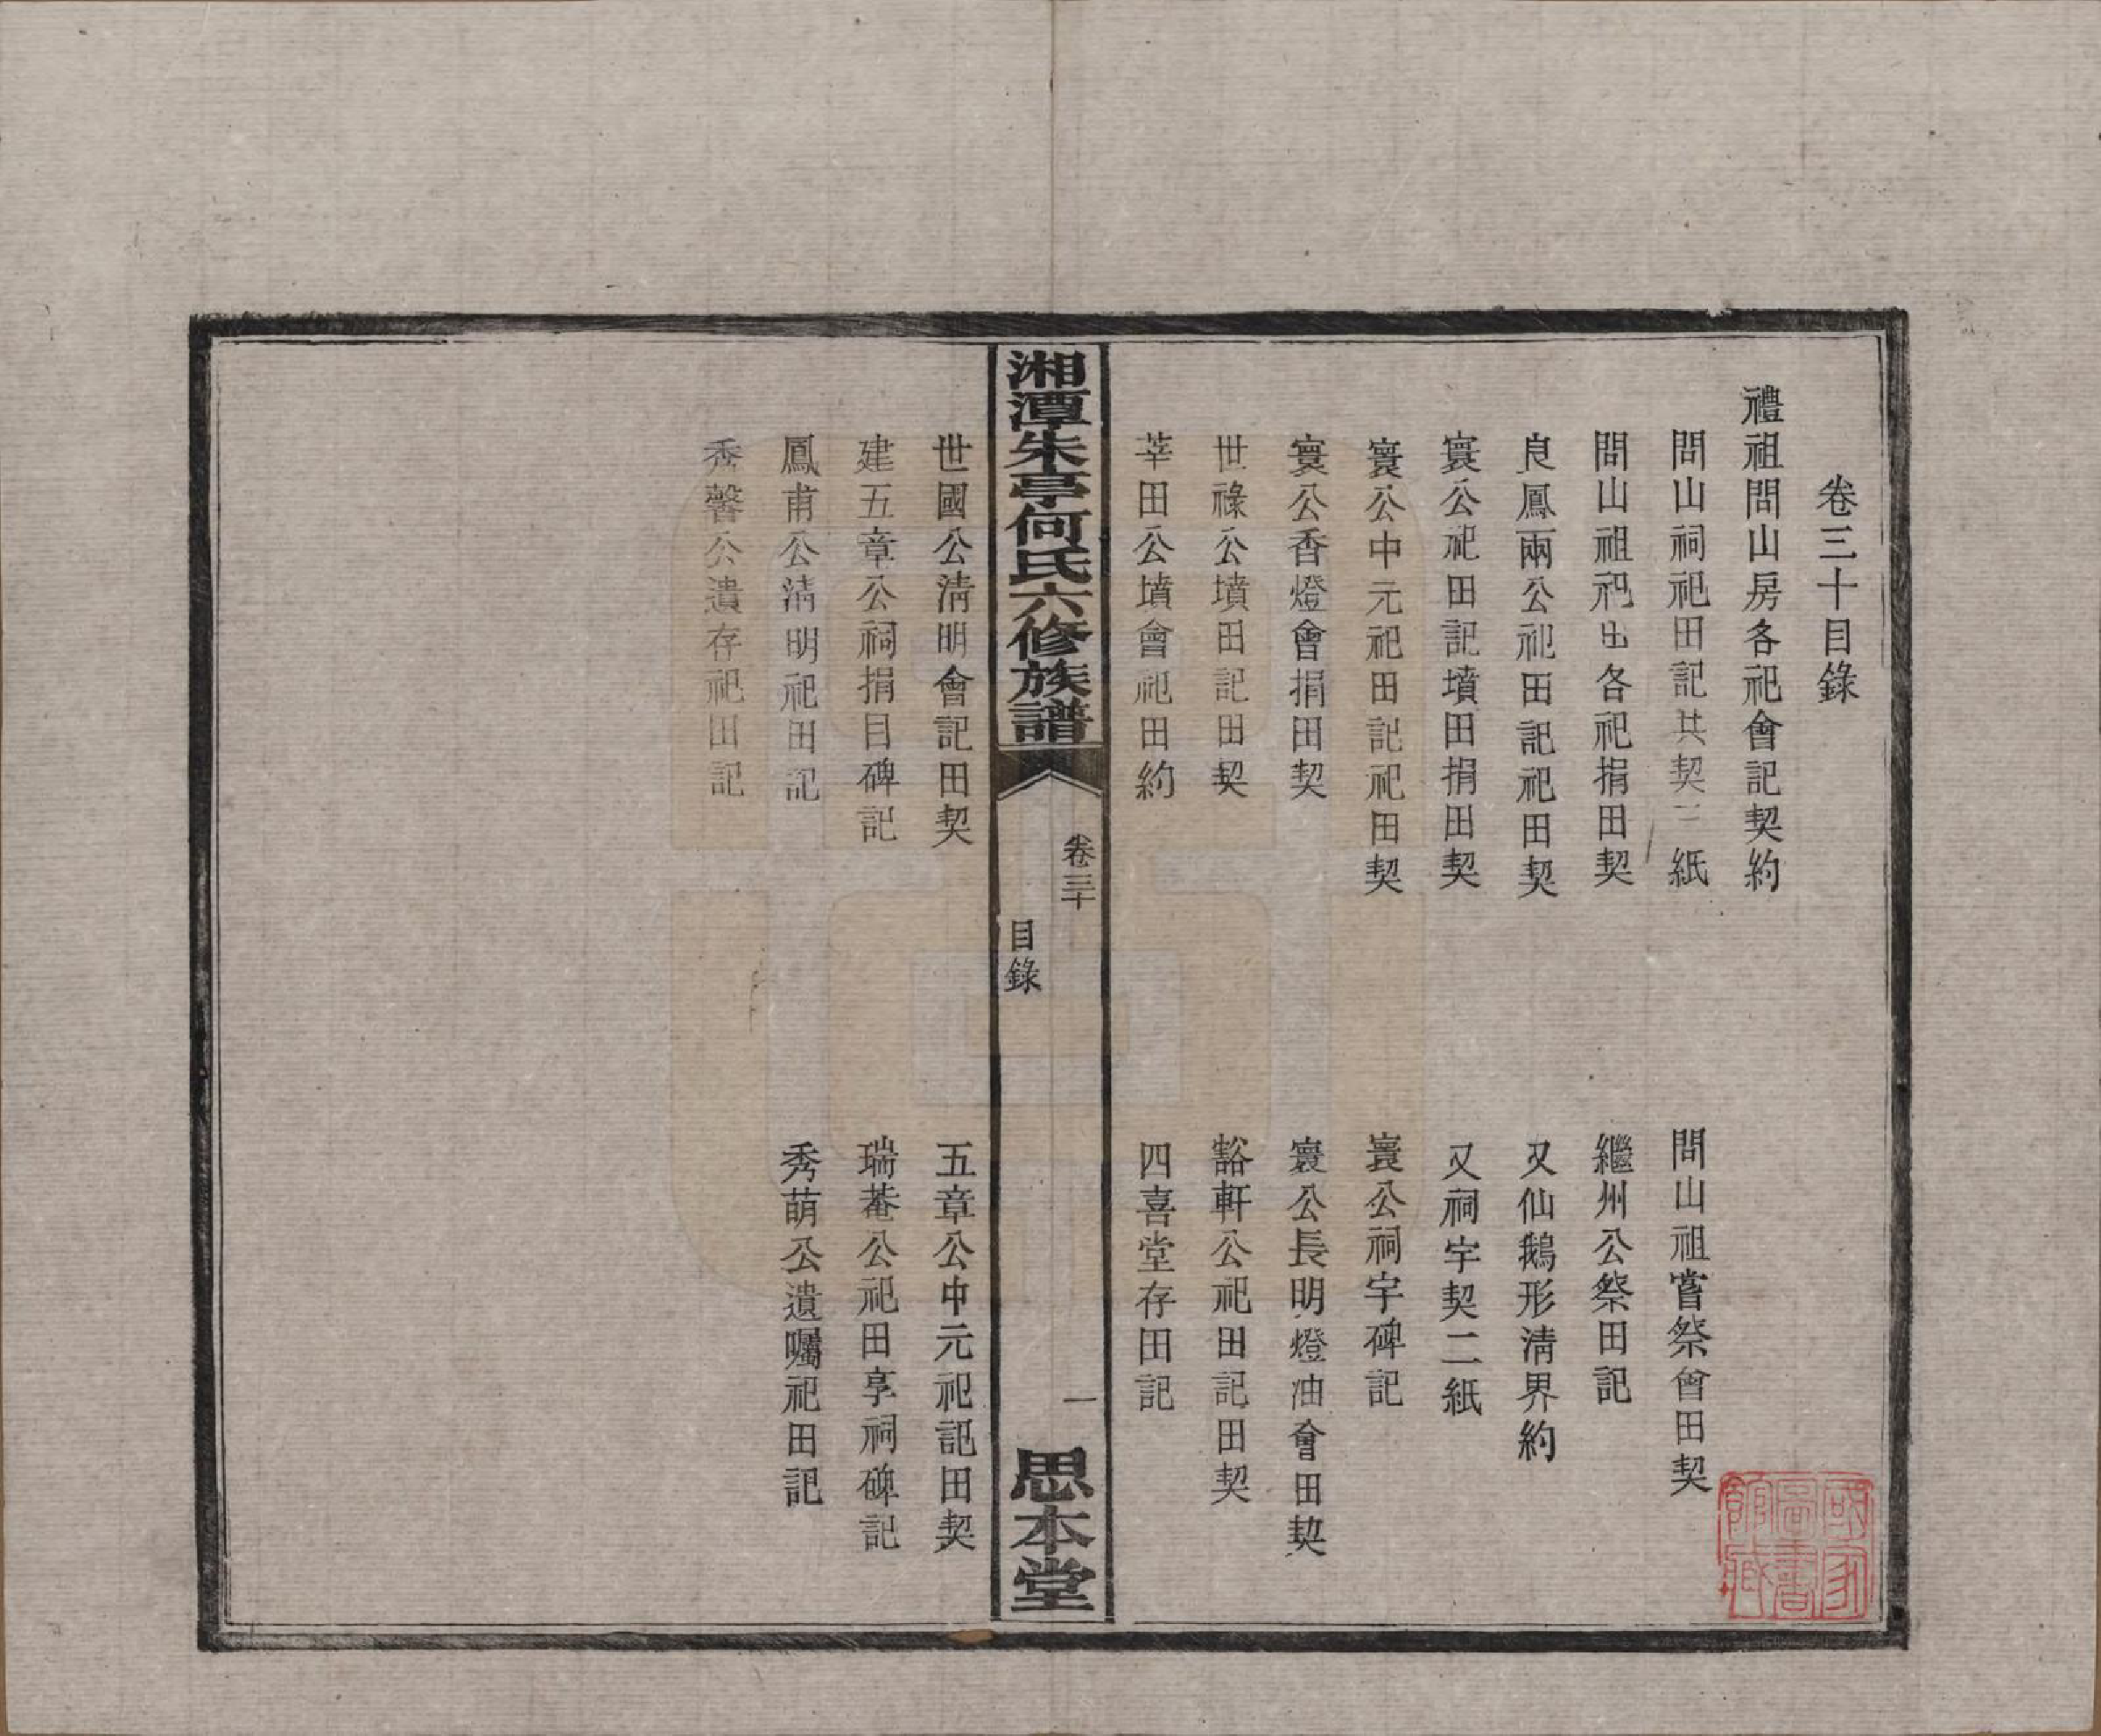 卷三十目錄
禮祖問山房各祀會記契約
問山祠祀田記共契二紙
問山祖嘗祭會田契
問山祖祀出各祀捐田契
繼州公祭田記
良鳳兩公祀田記祀田契
又仙鵝形淸界約
寰公祀田記墳田捐田契
又祠宇契二紙
寰公中元祀田記祀田契
寰公祠宇碑記
寰公香燈會捐田契
寰公長明燈油會田契
世祿公墳田記田契
豁軒公祀田記田契
莘田公墳會祀田約
四喜堂存田記
湘潭朱亭何氏六修族譜
卷三十
目錄
一
思本堂
世國公淸明會記田契
五章公中元祀記田契
建五章公祠捐目碑記
瑞菴公祀田享祠碑記
鳳甫公淸明祀田記
秀萌公遺囑祀田記
秀馨公遺存祀田記
國家圖書館藏